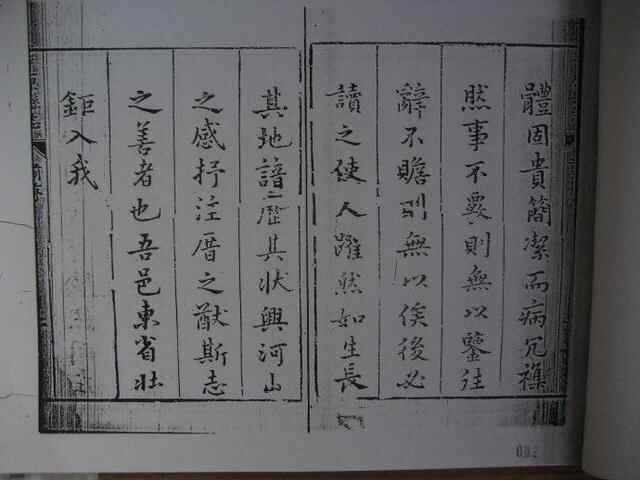 體固貴簡潔而病冗襍
然事不覈則無以鑒往
辭不贍則無以俟後必
讀之使人躍然如生長
其地諳歷其狀興河山
之感抒注厝之猷斯志
之善者也吾邑東省壯
鉅入我